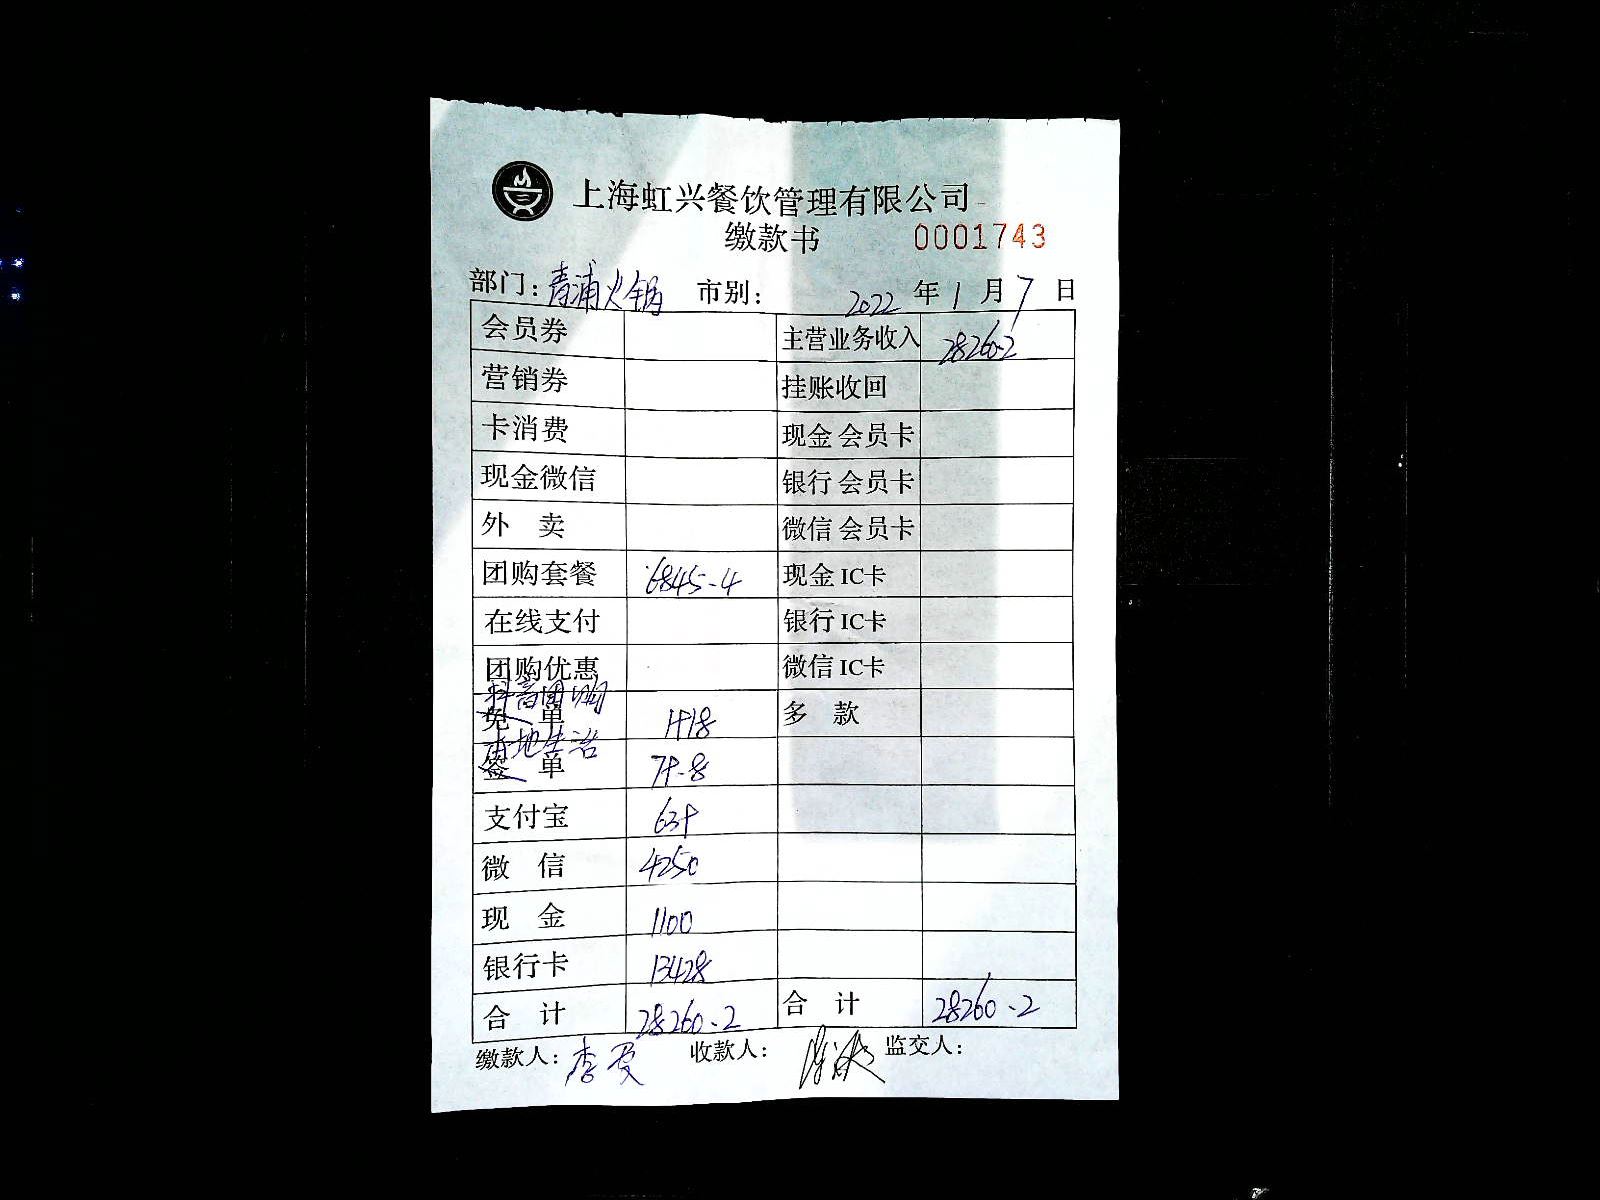 上海虹兴餐饮管理有限公司
缴款书 0001743
部门: 青浦火锅 市别: 2022 年 1 月 7 日
会员券 主营业务收入 28260-2
营销券 挂账收回
卡消费 现金 会员卡
现金微信 银行 会员卡
外 卖 微信 会员卡
团购套餐 6845-4 现金 IC卡
在线支付 银行 IC卡
团购优惠 微信 IC卡
抖音团购
免 单 1918 多 款
本地生活
签 单 79-8
支付宝 639
微 信 4250
现 金 1100
银行卡 13428
合 计 28260-2 合 计 28260-2
缴款人: 李 收款人: 监交人: